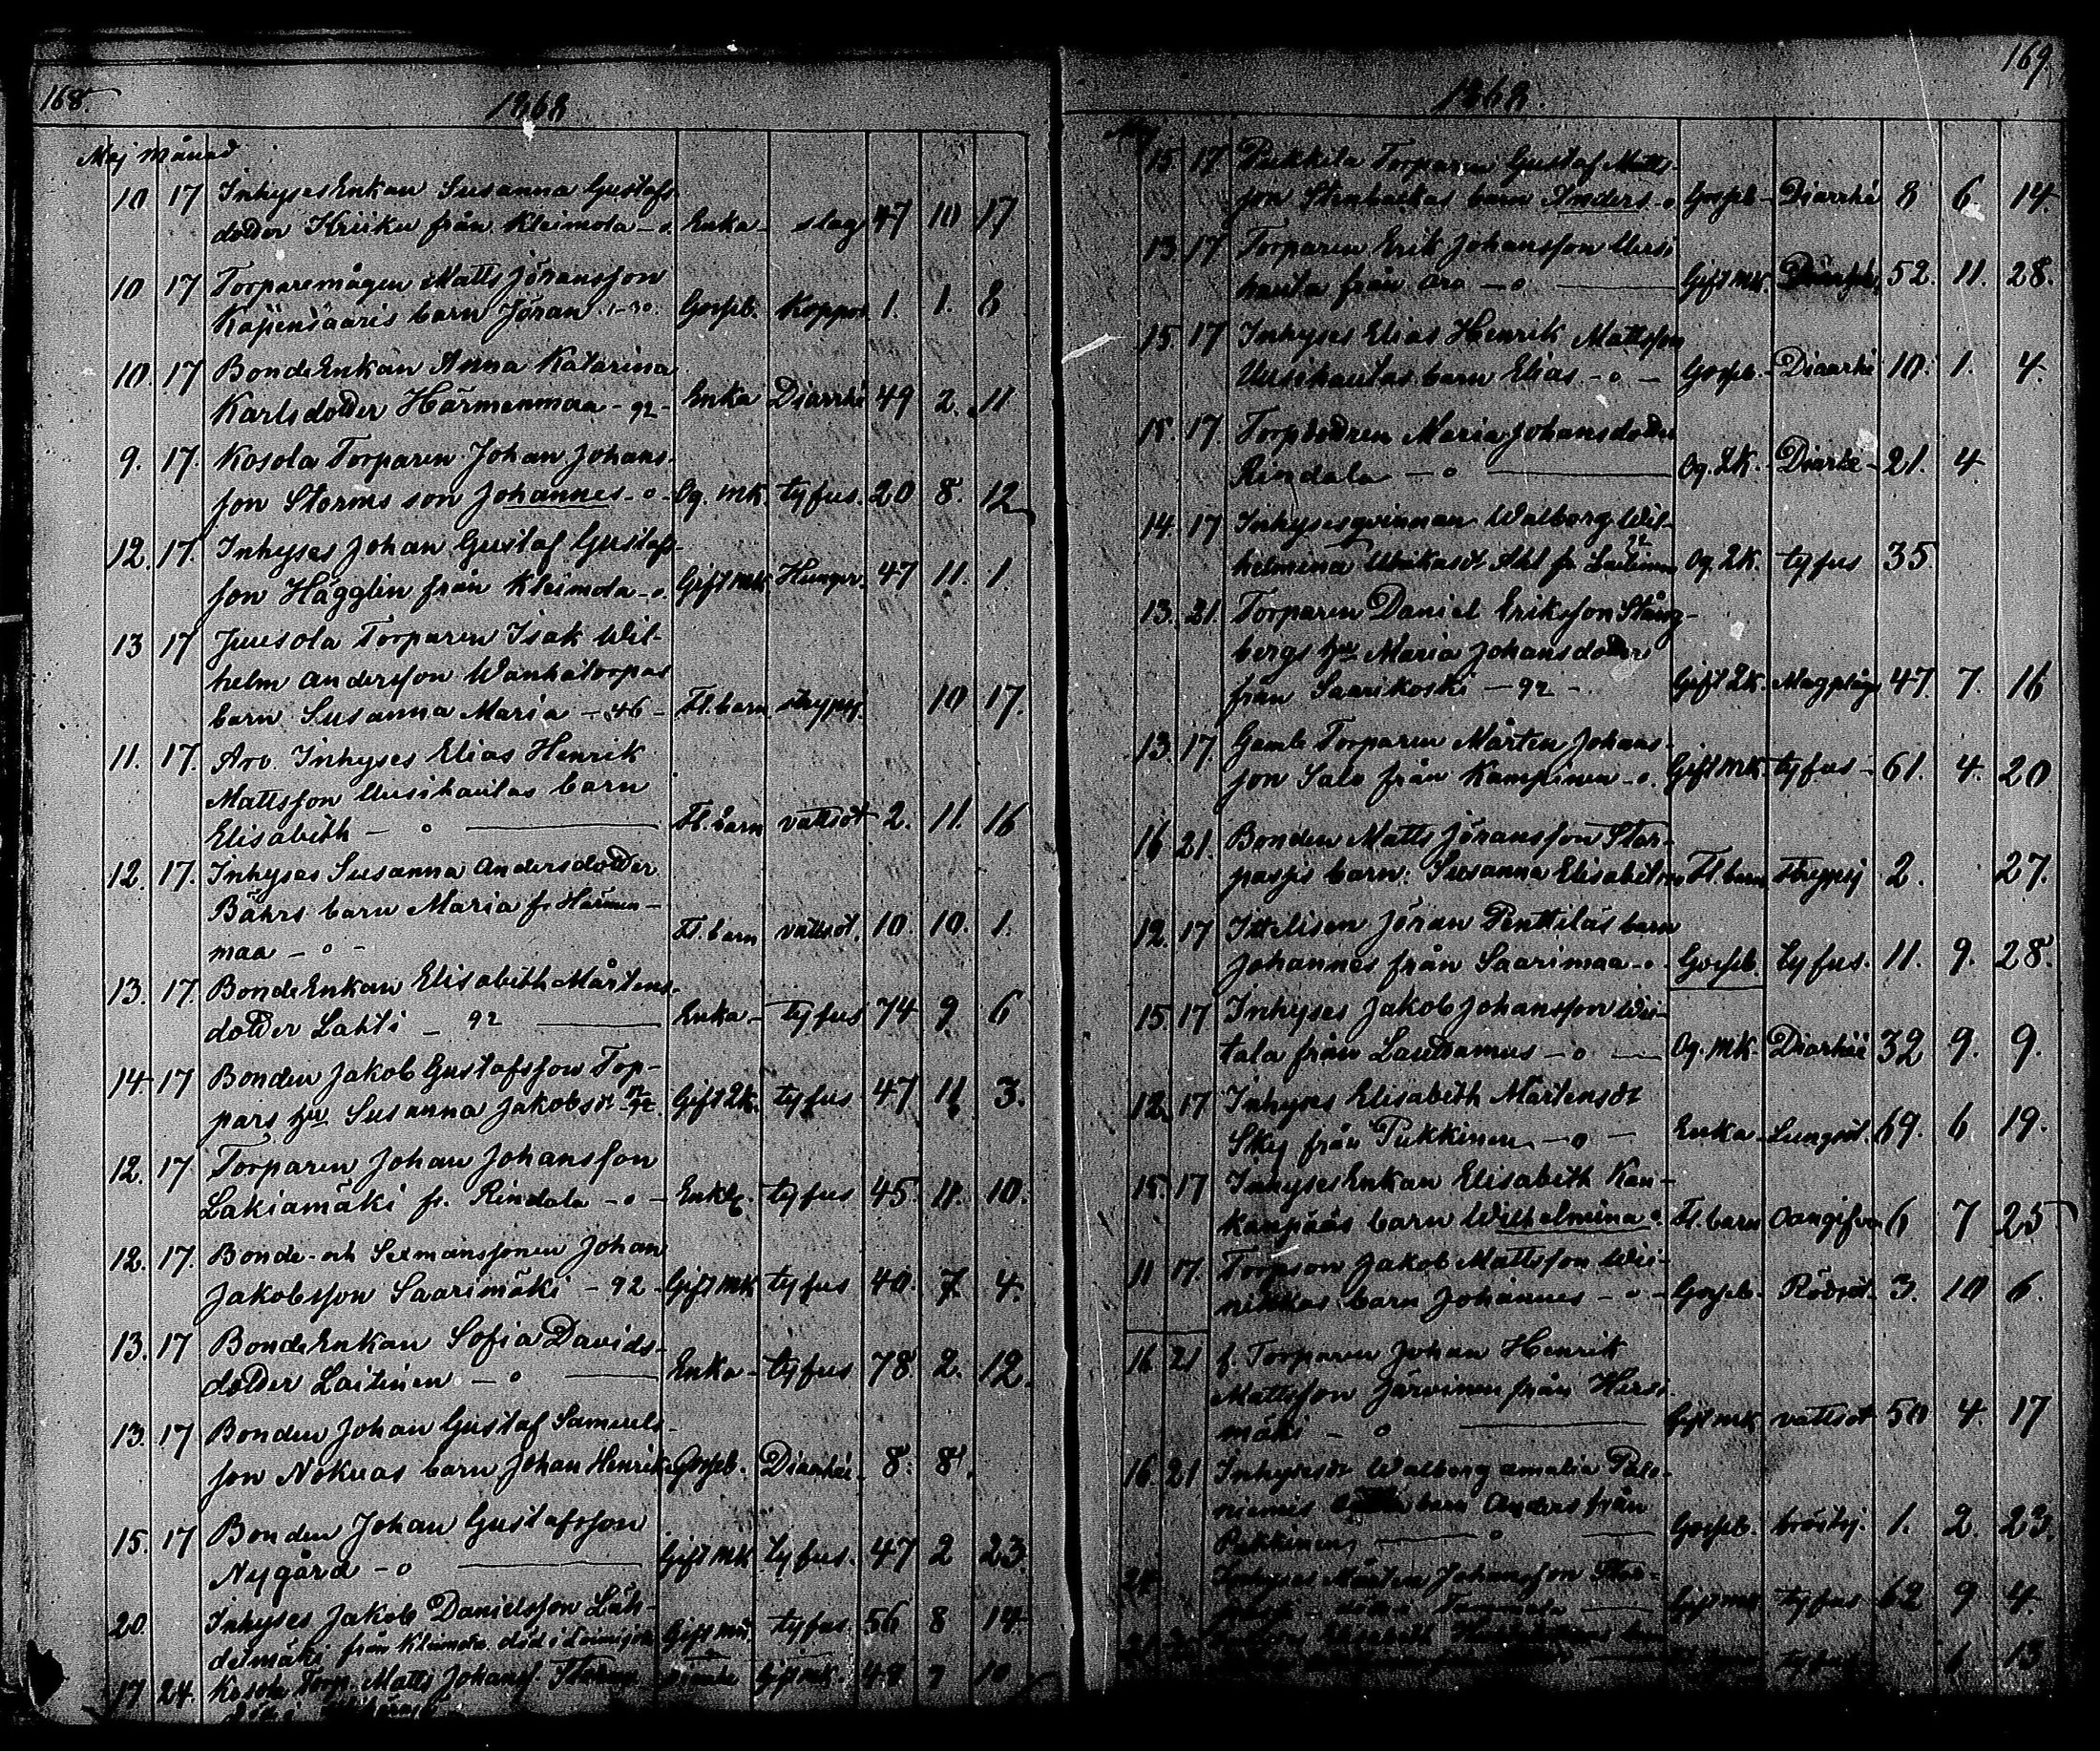 168.
1868
Maj Månad
10 17 Inhyses Enkan Susanna Gustafs
dotter Kriiku från Kleimola - o. Enka - slag 47 10 17
10 17 Torparemågen Matts Jöransson
barn Jöran Gosseb. Koppor 1. 1. 8
10. 17 Bonde Enkan Anna Katarina
Karlsdotter Härmenmaa - 92 - Enka Diarrhé 49 2. 11
9. 17. Kosola Torparen Johan Johans-
son Storms son Johannes - o - Og. mk. tyfus. 20 8. 12
12. 17. Inhyses Johan Gustaf Gustafs-
son Hägglin från Kleimola - o. Gift mk Hunger. 47 11. 1
13 17 Juusola Torparen Isak Wil-
helm Andersson Wanhatorpas
barn Susanna Maria - 46 - Fl. barn strypsj. 10 17.
11. 17. Aro. Inhyses Elias Henrik
Mattsson Uusihautas barn
Elisabeth - o Fl. barn vattsot 2. 11. 16
12. 17. Inhyses Susanna Andersdotter
Bährs barn Maria fr. Härmen-
maa - o - Fl. barn vattsot. 10. 10. 1.
13. 17. Bonde Enkan Elisabeth Mårtens-
dotter Lahti - 92 Enka - tyfus 74 9 6
14 17 Bonden Jakob Gustafsson Top-
pars hu Susanna Jakobsdr Gift Qk. tyfus 47 11 3.
12. 17 Torparen Johan Johansson
Lakiamäki fr. Rindala - o - Enkl. tyfus 45. 11. 10.
12. 17. Bonde- och Sexmanssonen Johan
Jakobsson Saarimäki - 92 - Gift mk tyfus 40. 7. 4.
13. 17 Bonde Enkan Sofia Davids-
dotter Laitinen - o Enka - tyfus 78. 2. 12.
13. 17 Bonden Johan Gustaf Samuels-
son Nokuas barn Johan Henrik Gosseb. Diarrhée 8. 8.
15. 17 Bonden Johan Gustafsson
Nygård - o Gift mk tyfus. 47 2 23
20. Inhyses Jakob Danielsson Läh-
detmäki från Kleimola död i Gift mk. tyfus 56 8 14.
17 24. Kosola Torp. Matts Johanss. Gift mk. 48 7 10
169
1868.
Maj
15. 17. Pukkila Torparen Gustaf Matts-
son barn Anders - o Gosseb - Diarrhé 8 6 14.
13 17 Torparen Erik Johansson Uusi
hauta från Aro - o Gift mk. 52. 11. 28.
15. 17 Inhyses Elias Henrik Mattsson
Uusihautas barn Elias - o - Gosseb. - Diaarhé 10. 1. 4.
15. 17. Torpdottren Maria Johansdotter
Rindala - o Og. Qk. - Diarhé - 21. 4
14. 17 Inhysesqvinnan Walborg Wil-
helmina Og. Qk. tyfus 35
13. 21. Torparen Daniel Eriksson Stång-
bergs hu Maria Johansdotter
från Saarikoski - 92 - Gift Qk. Magplåga 47. 7. 16
13. 17. Gamle Torparen Mårten Johans-
son Salo från Kamppinen - o. Gift mk. tyfus - 61. 4. 20
16 21. Bonden Matts Jöransson Stor-
passis barn Susanna Elisabet Fl. barn strypsj 2. 27.
12. 17 Jöran Penttiläs barn
Johannes från Saarimaa - o. Gosseb. tyfus. 11. 9. 28.
15. 17 Inhyses Jakob Johansson Wii-
tala från Lautamus - o - Og. mk. - Diarhée 32 9. 9.
12. 17 Inhyses Elisabeth Mårtensdr
Sky från Pukkinen - o - Enka - Lungsot. 69. 6 19.
15. 17 Inhyses Enkan Elisabeth Kan-
kaapääs barn Wilhelmina o. Fl. barn Oangifven 6 7 25
11 17. Torpson Jakob Mattsson Wii-
nikkas barn Johannes - o - Gosseb - Rödsot. 3. 10 6.
16. 21 f. Torparen Johan Henrik
Mattsson Järvinen från Hirsi
mäki - o Gift mk vattsot 50 4. 17
16. 21 Inhysesdr Walborg Amalia Palo-
niemis barn Anders från
Pukkinen - o Gosseb. bröstsj. 1. 2. 23.
24. Inhyses Mårten Johansson Stor-
Gift mk tyfus 62 9 4.
Elisabeth tyfus 6 13